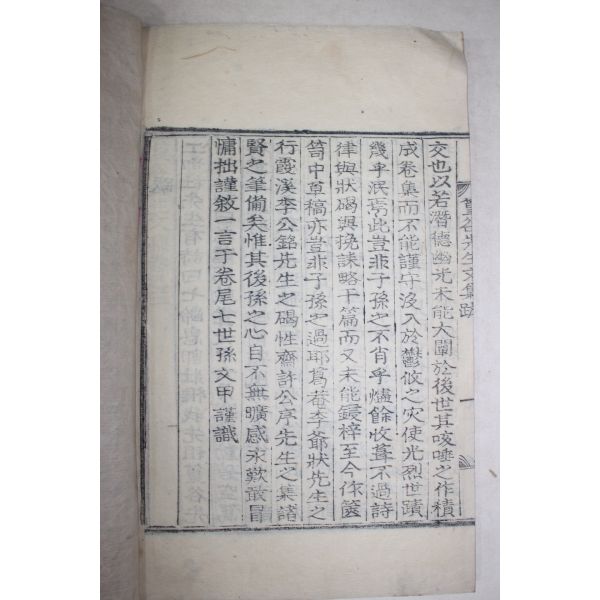 交也以若潛德幽光未能大闡於後世其咳唾之作積
成卷集而不能謹守沒入於鬱攸之灾使光烈世蹟
幾乎泯焉此豈非子孫之不肖乎爐餘收葺不過詩
律與狀碣與挽誄略干篇而又未能鋟梓至今作篋
笥中草稿亦豈非子孫之過耶爲菴李爺狀先生之
行霞溪李公銘先生之碣性齋許公序先生之集諸
賢之筆備矣惟其後孫之心自不無曠感永歎敢冒
慵拙謹敘一言于卷尾七世孫文甲謹識
谷先生文集跋
一